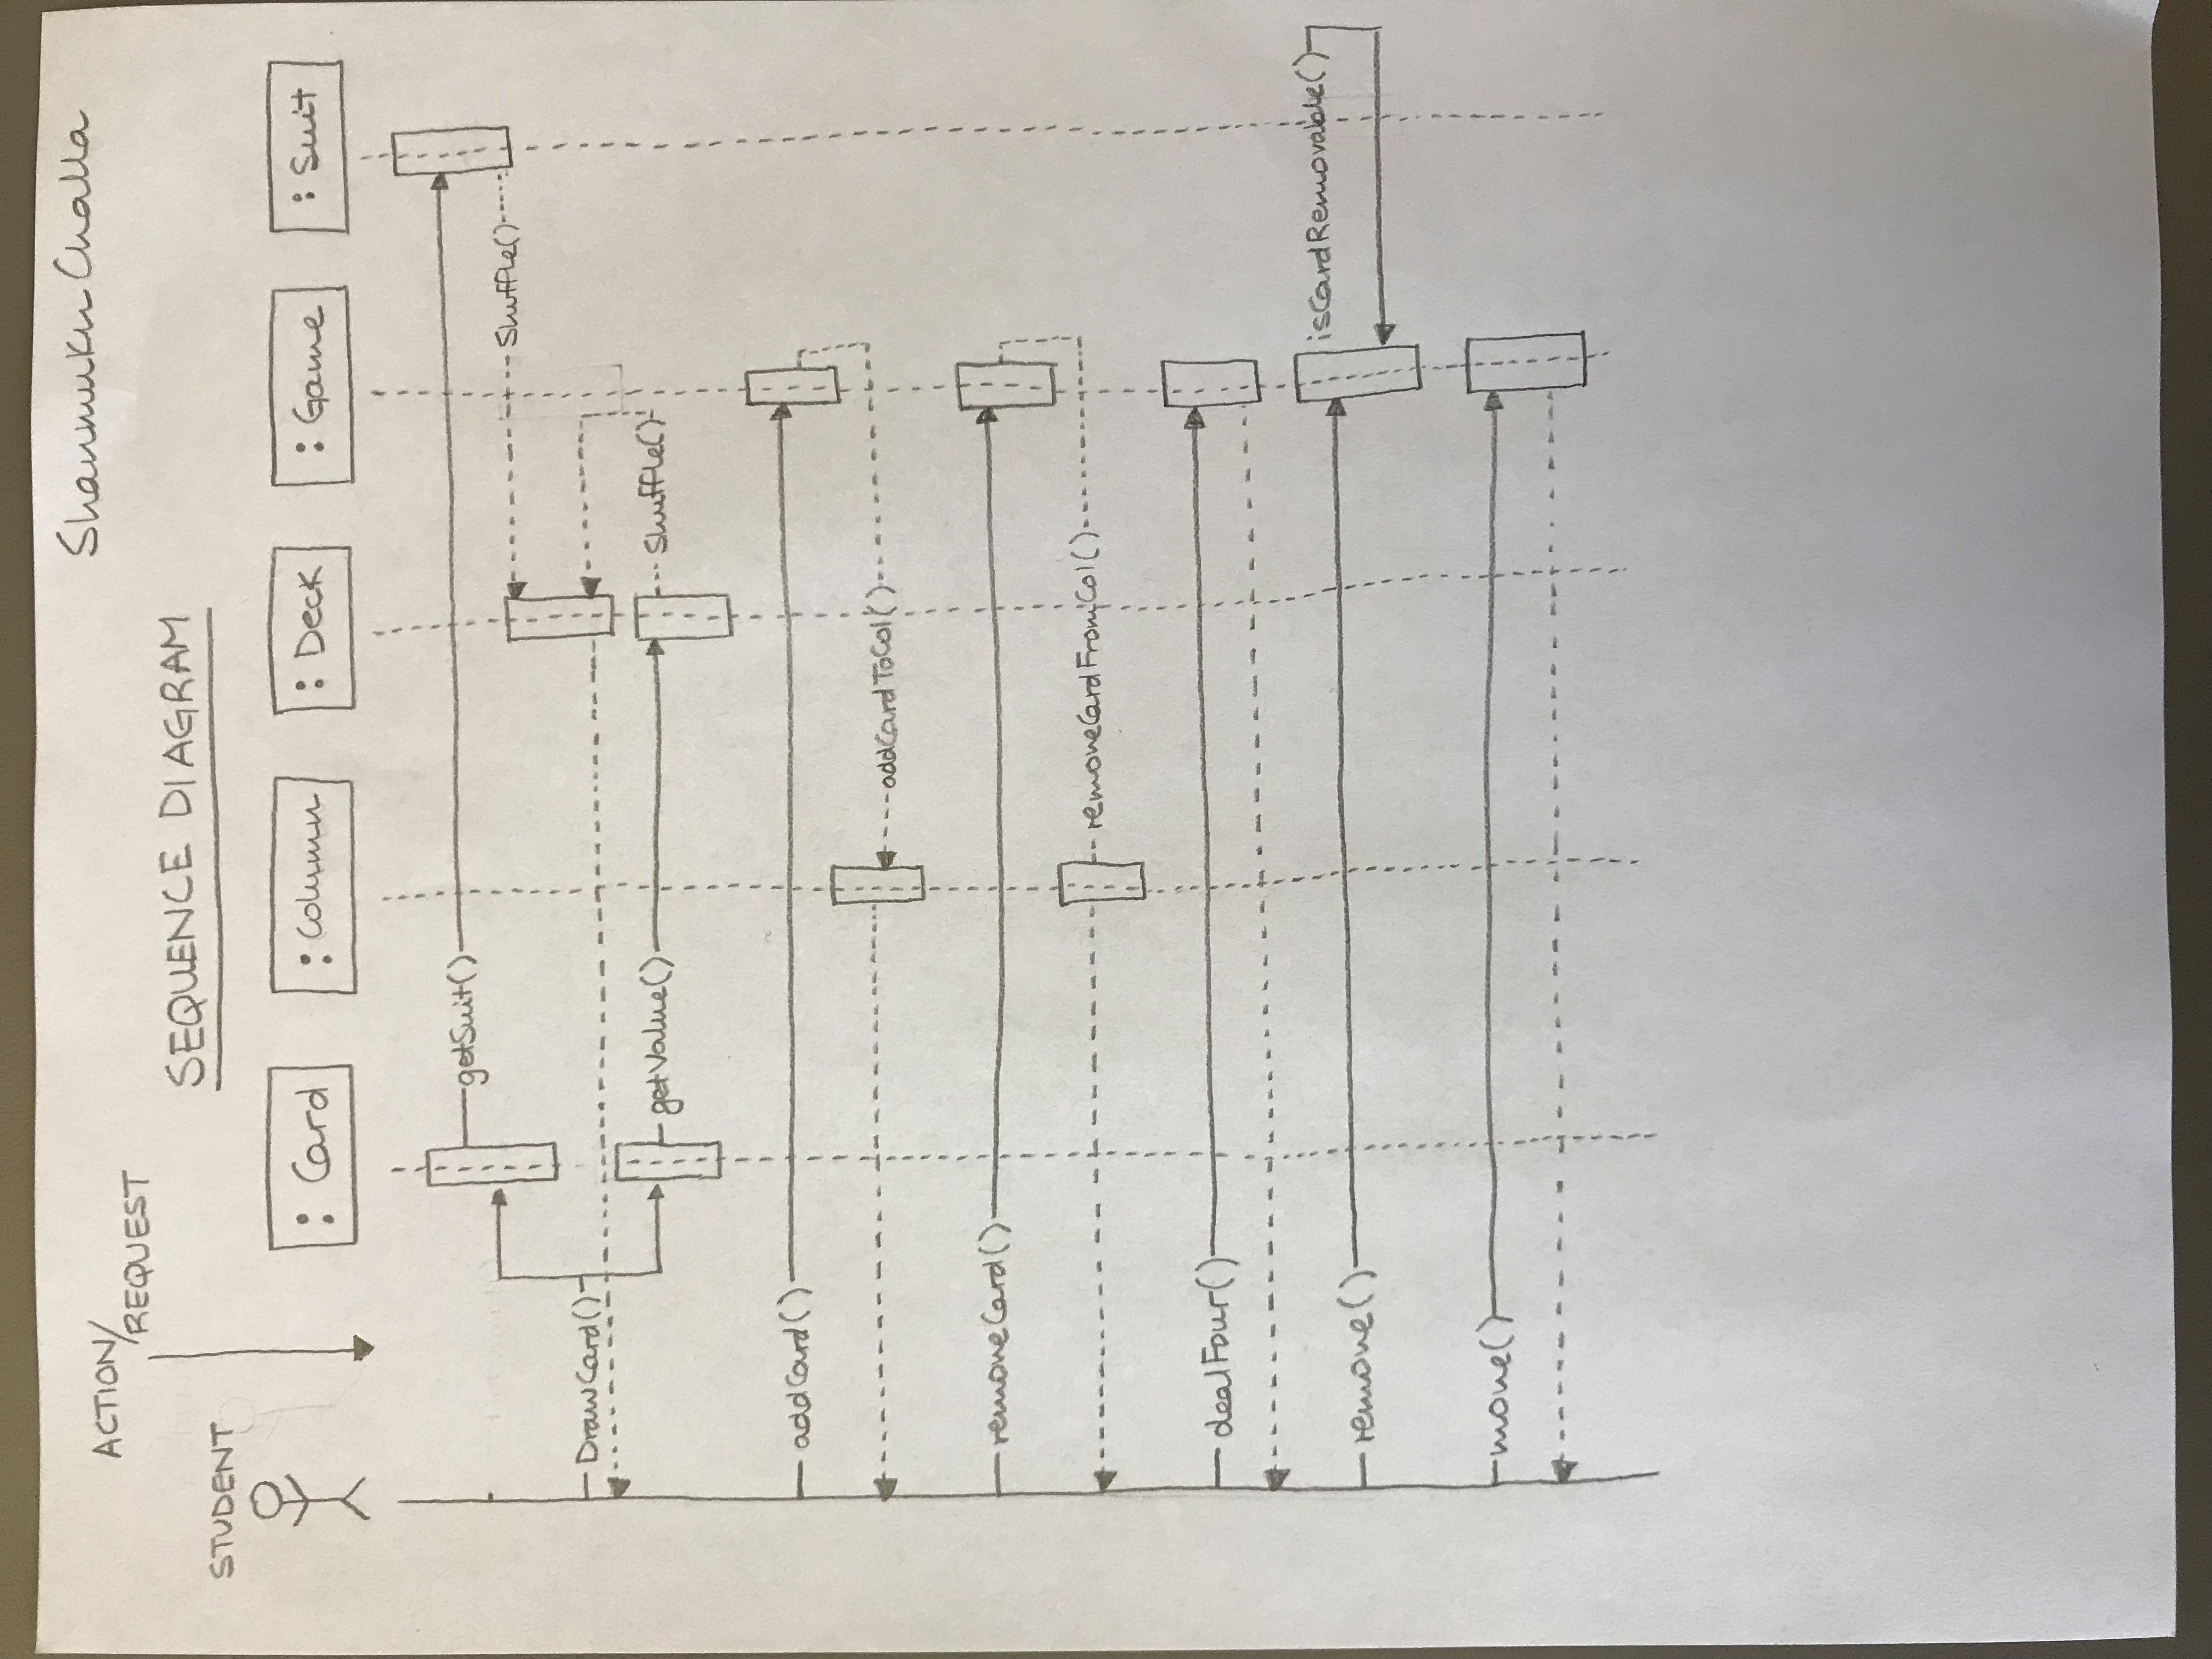 Shanmukh Challa
ACTION/
REQUEST
SEQUENCE DIAGRAM
STUDENT
: Card
: Column
: Deck
: Game
: Suit
getSuit()
Shuffle()
DrawCard()
getValue()
Shuffle()
addCard()
addCardToCol()
removeCard()
removeCardFromCol()
dealFour()
isCardRemovable()
remove()
move()